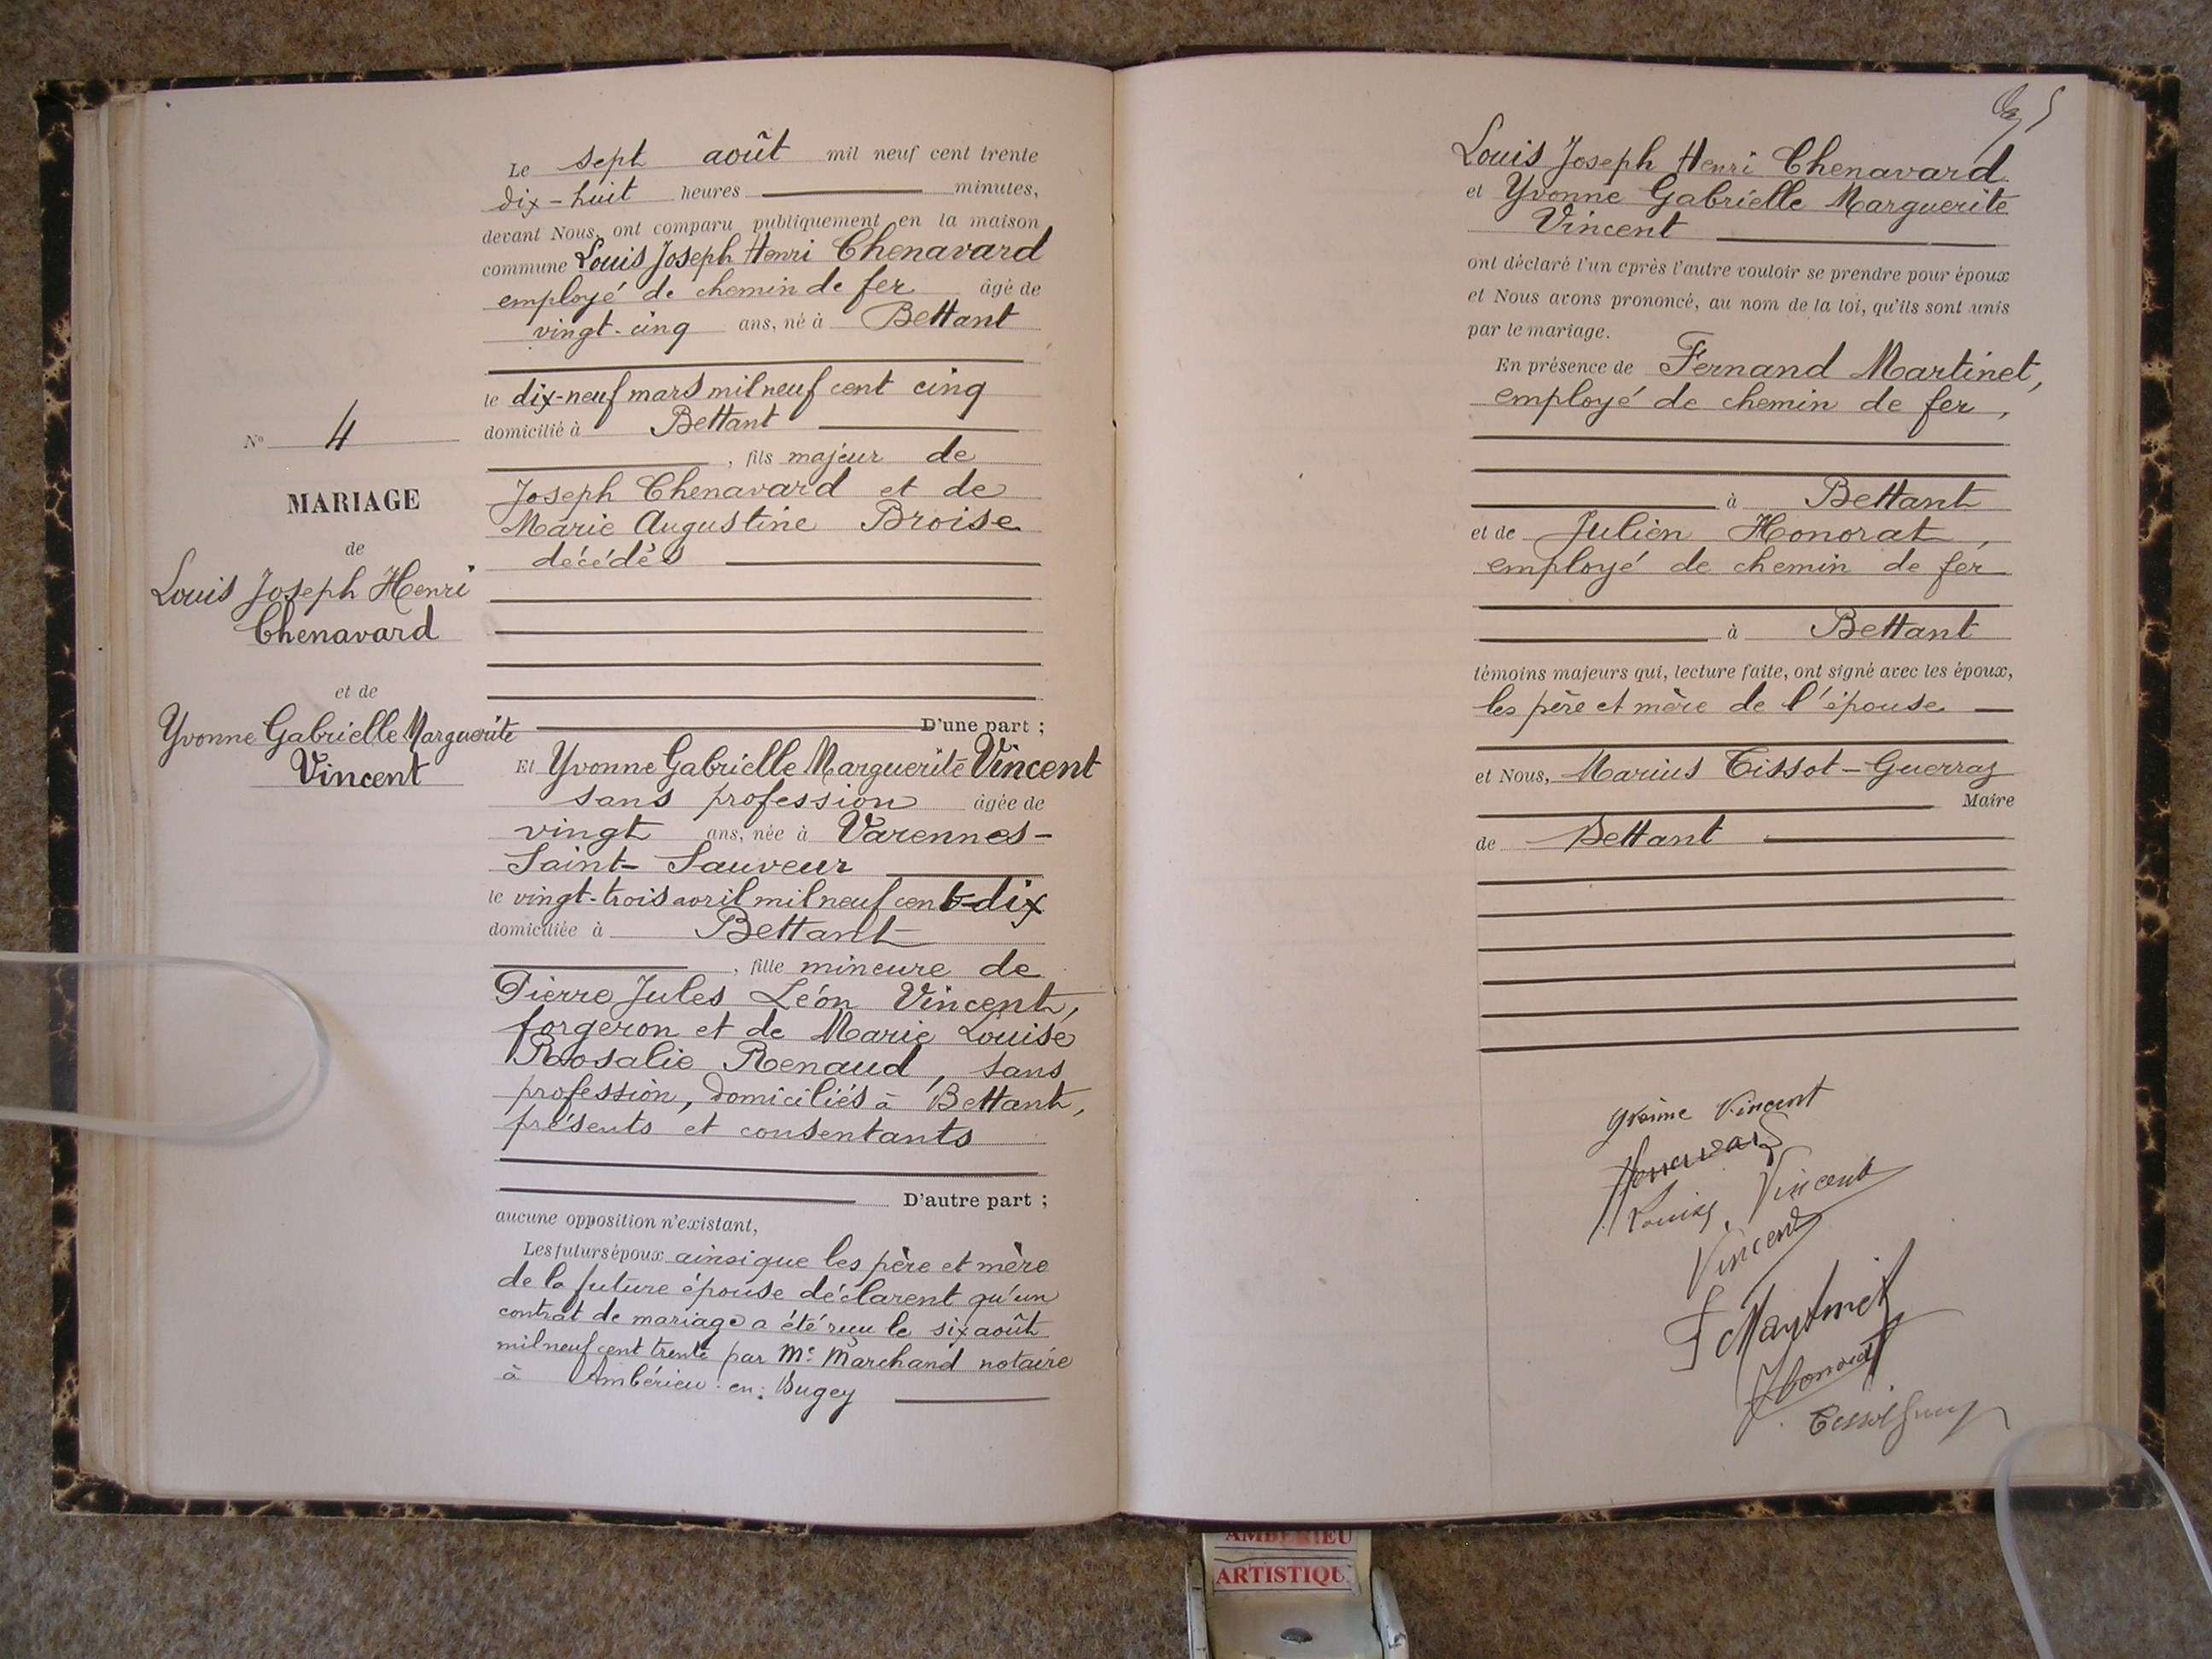 N° 4
MARIAGE
de
Louis Joseph Henri
Chenavard
et de
Yvonne Gabrielle Marguerite
Vincent
Le sept août mil neuf cent trente
dix-huit heures minutes,
devant Nous, ont comparu publiquement en la maison
commune Louis Joseph Henri Chenavard
employé de chemin de fer âgé de
vingt-cinq ans, né à Bettant
le dix-neuf mars mil neuf cent cinq
domicilié à Bettant
, fils majeur de
Joseph Chenavard et de
Marie Augustine Broise
décédés
D'une part ;
Et Yvonne Gabrielle Marguerite Vincent
sans profession âgée de
vingt ans, née à Varennes-
Saint-Sauveur
le vingt-trois avril mil neuf cent-dix
domiciliée à Bettant
, fille mineure de
Pierre Jules Léon Vincent,
forgeron et de Marie Louise
Rosalie Renaud, sans
profession, domiciliés à Bettant,
présents et consentants
D'autre part ;
aucune opposition n'existant,
Les futurs époux ainsi que les père et mère
de la future épouse déclarent qu'un
contrat de mariage a été reçu le six août
mil neuf cent trente par Me Marchand notaire
à Ambérieu-en-Bugey
Louis Joseph Henri Chenavard
et Yvonne Gabrielle Marguerite
Vincent
ont déclaré l'un après l'autre vouloir se prendre pour époux
et Nous avons prononcé, au nom de la loi, qu'ils sont unis
par le mariage.
En présence de Fernand Martinet,
employé de chemin de fer,
à Bettant
et de Julien Honorat,
employé de chemin de fer
à Bettant
témoins majeurs qui, lecture faite, ont signé avec les époux,
les père et mère de l'épouse
et Nous, Marius Tissot-Guerraz
Maire
de Bettant
Yvonne Vincent
Chenavard
Louise Vincent
Vincent
F Martinet
J Honorat
AMBERIEU
ARTISTIQU